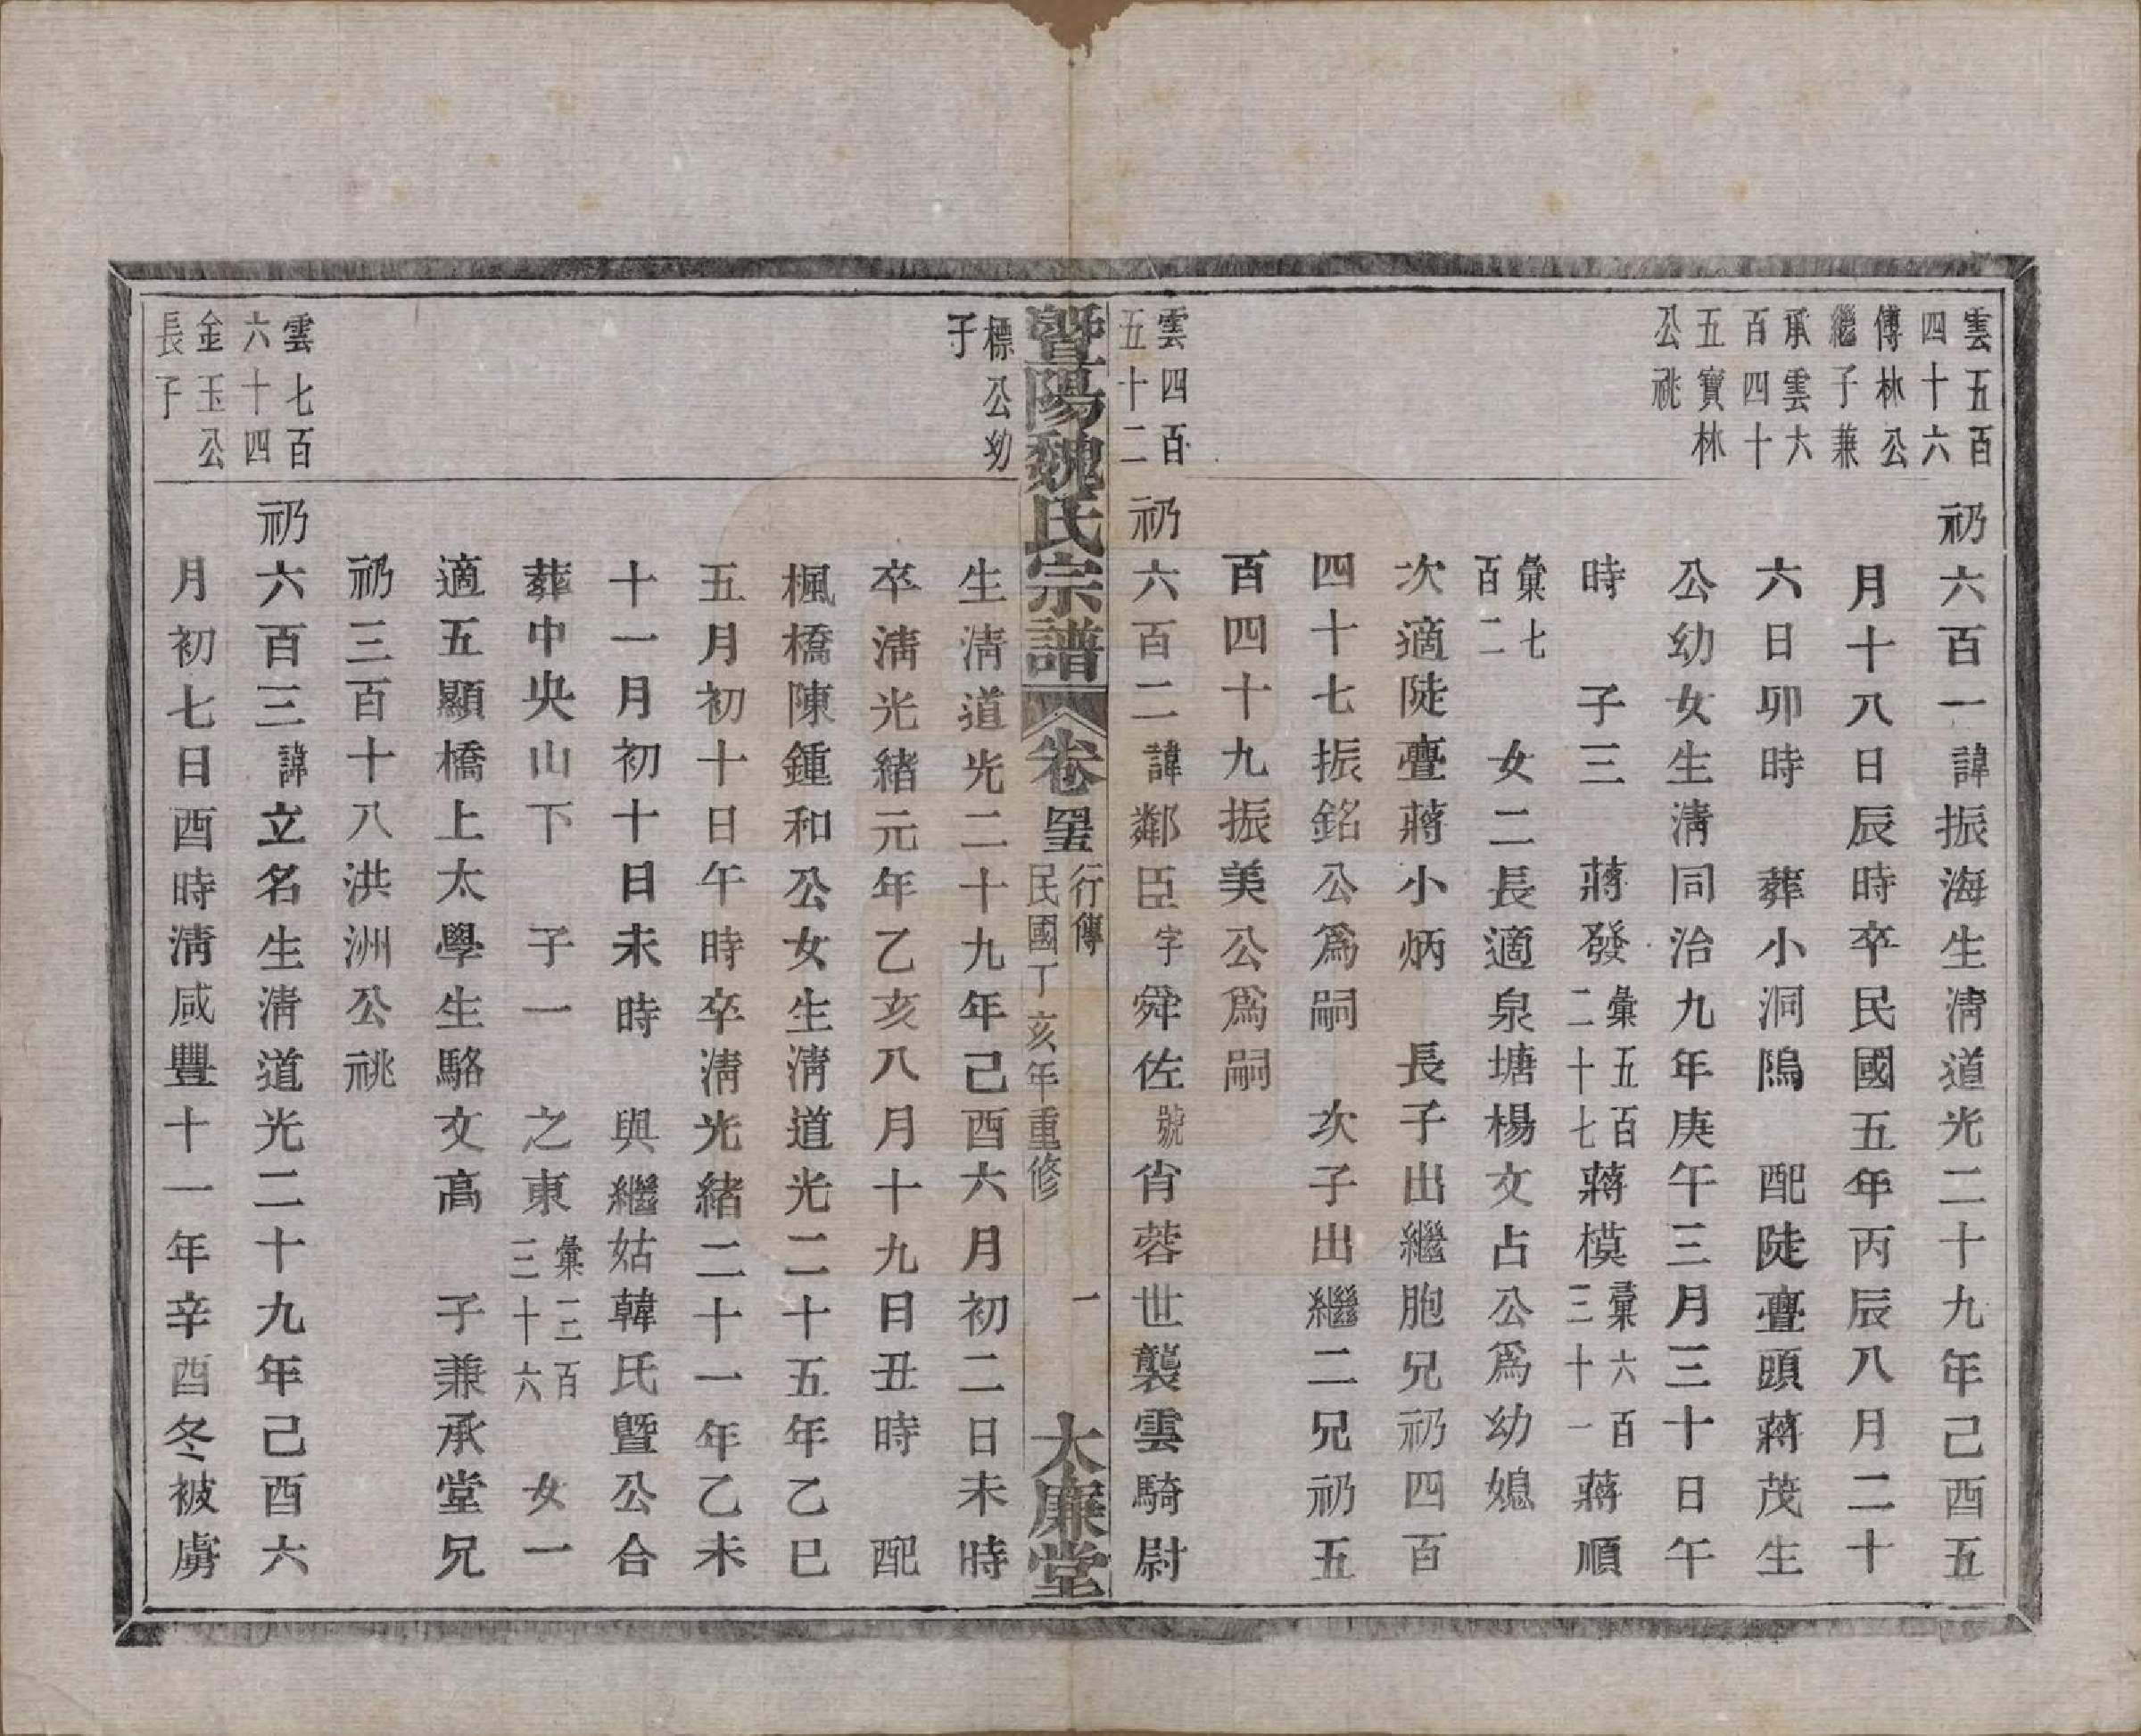 雲五百
四十六
傅林公
繼子兼
承雲大
百四十
五寶林
公祧
礽六百一諱振海生清道光二十九年己酉五
月十八日辰時卒民國五年丙辰八月二十
六日卯時　葬小洞隖　配陡亹頭蔣茂生
公幼女生清同治九年庚午三月三十日午
時　子三　蔣發彙五百二十七蔣模彙六百三十一蔣順
彙七百二　女二長適泉塘楊文占公爲幼媳
次適陡亹蔣小炳　長子出繼胞兄礽四百
四十七振銘公爲嗣　次子出繼二兄礽五
百四十九振美公爲嗣
雲四百
五十二
礽六百二諱鄰臣字舜佐號肖蓉世襲雲騎尉
暨陽魏氏宗譜　卷四五　行傳　民國丁亥年重修　一　大廉堂
標公幼
子
生清道光二十九年己酉六月初二日未時
卒清光緒元年乙亥八月十九日丑時　配
楓橋陳鍾和公女生清道光二十五年乙巳
五月初十日午時卒清光緒二十一年乙未
十一月初十日未時　與繼姑韓氏暨公合
葬中央山下　子一　之東彙三百三十六　女一
適五顯橋上太學生駱文高　子兼承堂兄
礽三百十八洪洲公祧
雲七百
六十四
金玉公
長子
礽六百三諱立名生清道光二十九年己酉六
月初七日酉時清咸豐十一年辛酉冬被虜